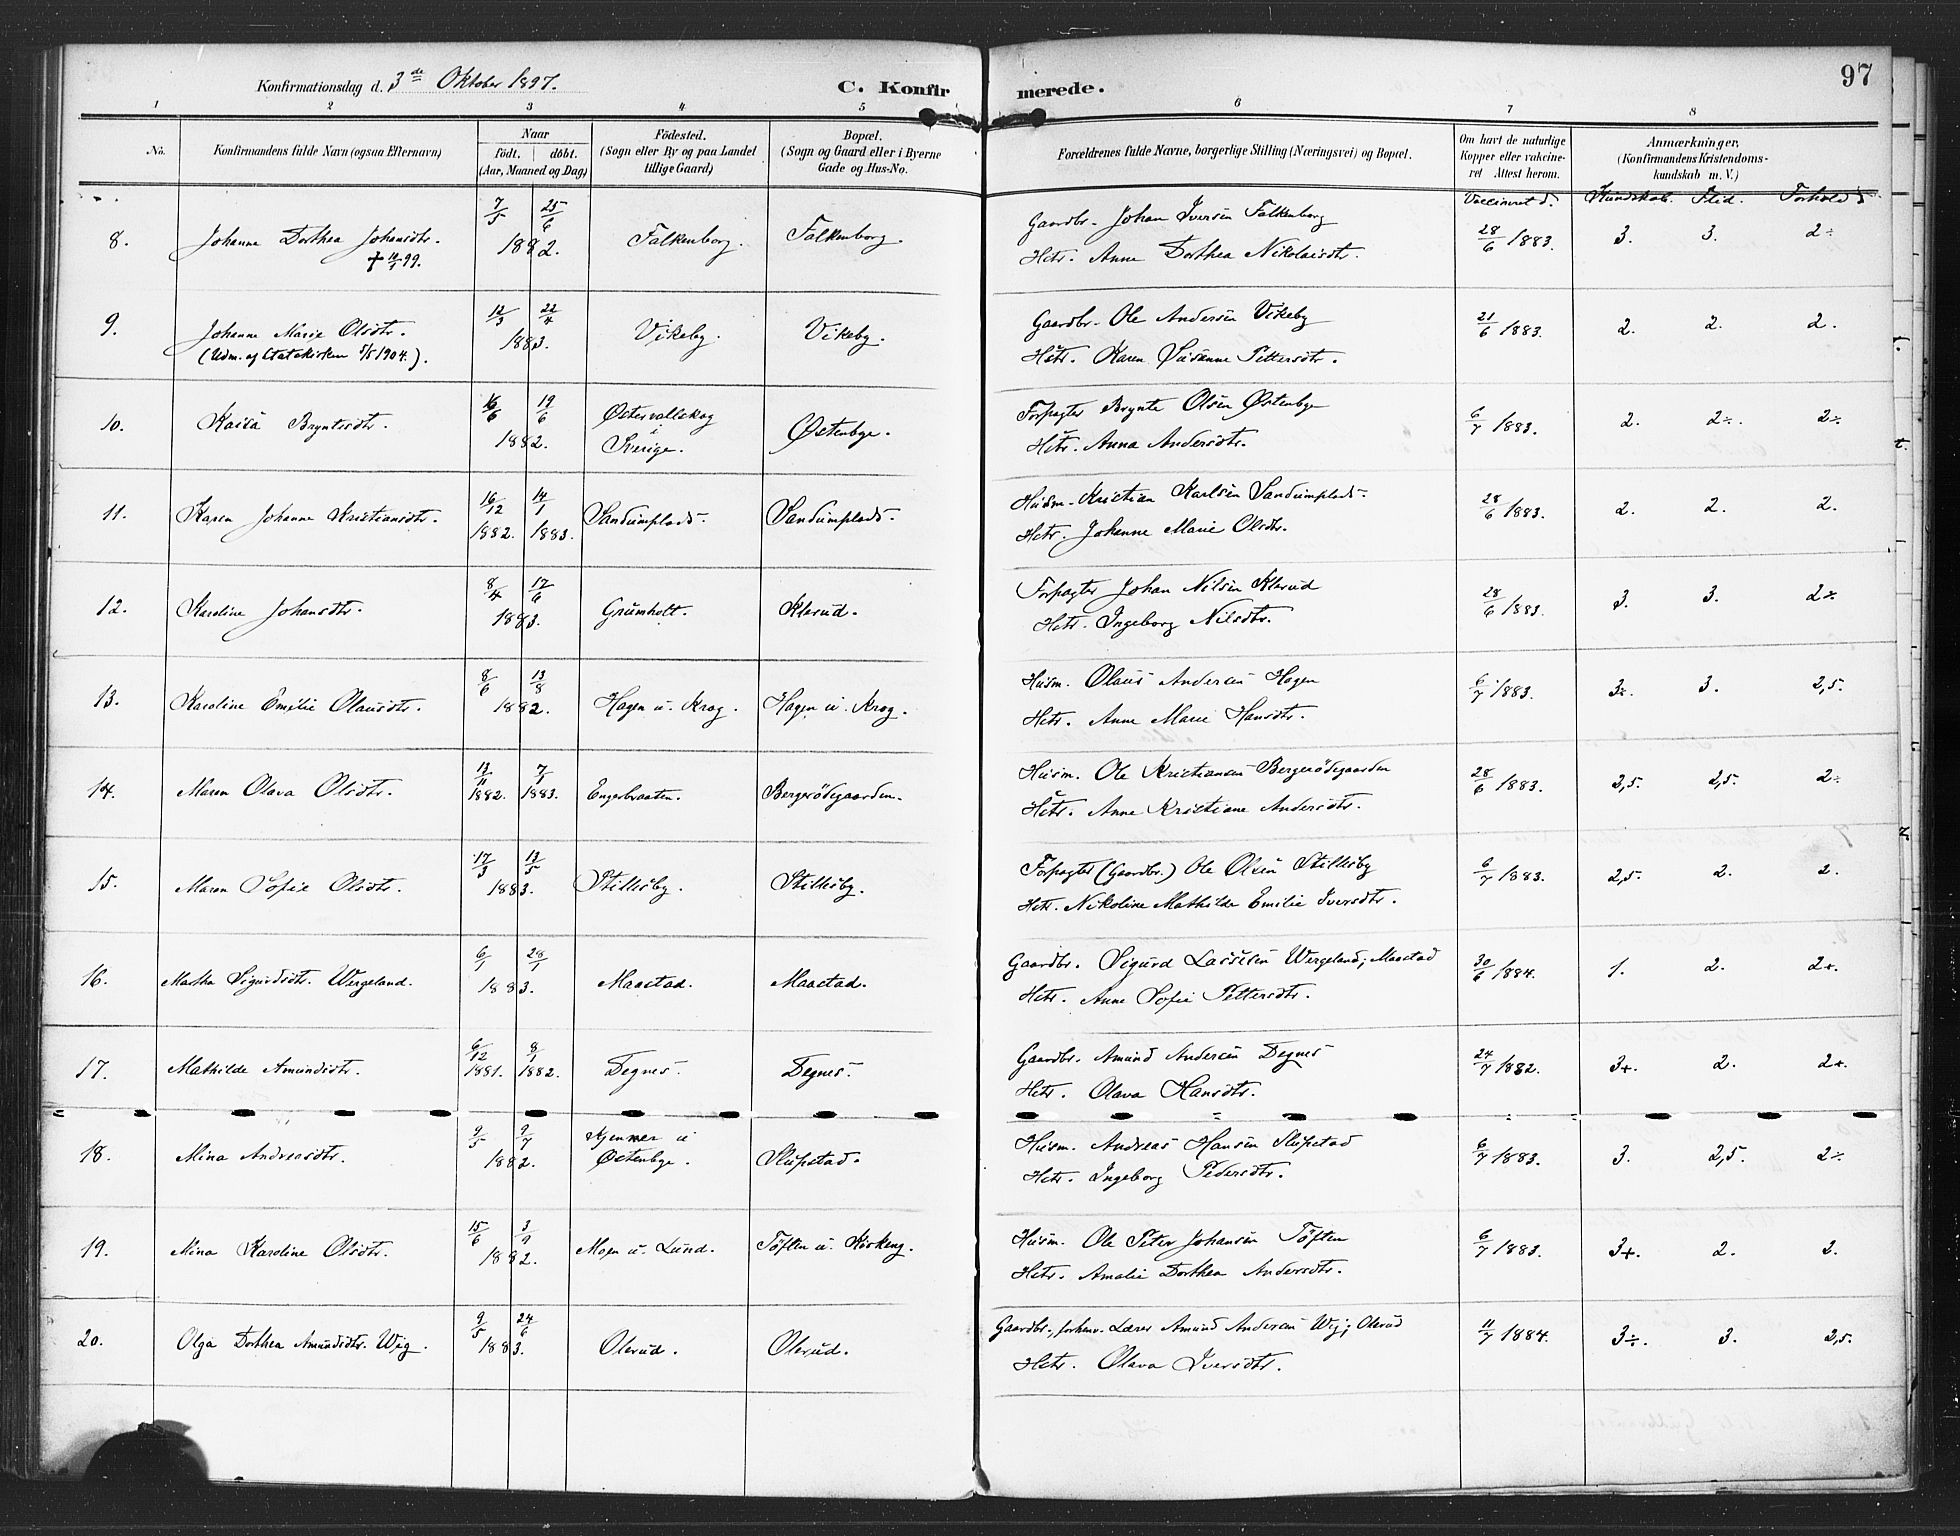 Konfirmationsdag d. 3de Oktober 1897.
C. Konfirmerede.
97
1 2 3 4 5 6 7 8
No.
Konfirmandens fulde Navn (ogsaa Efternavn)
Naar
födt. | döbt.
(Aar, Maaned og Dag)
Födested.
(Sogn eller By og paa Landet tillige Gaard)
Bopæl.
(Sogn og Gaard eller i Byerne Gade og Hus-No.
Forældrenes fulde Navne, borgerlige Stilling (Næringsvei) og Bopæl.
Om havt de naturlige Kopper eller vakcineret Attest herom.
Anmærkninger,
(Konfirmandens Kristendomskundskab m. V.)
Vaccineret d. Kundskab. Flid. Forhold
8. Johanne Dorthea Johansdtr. 7/5 25/6 1882. Falkenborg. Falkenborg. Gaardbr. Johan Iversen Falkenborg 28/6 1883. 3. 3. 2÷
Hstr. Anne Dorthea Nikolaisdtr.
9. Johanne Marie Olsdtr. 12/3 22/4 1883. Vikeby. Vikeby. Gaardbr. Ole Andersen Vikeby 21/6 1883. 2. 2. 2.
(Udm. af Statskirken 1/5 1904.) Hstr. Karen Susanne Pettersdtr.
10. Kaisa Bryntesdtr. 16/6 19/6 1882. Østervallskog i Sverige. Østenbye. Forpagter Brynte Olsen Østenbye 6/7 1883. 2. 2÷. 2÷
Hstr. Anna Andersdtr.
11. Karen Johanne Kristiansdtr. 16/12 1882. 14/1 1883. Sandumplads. Sandumplads. Husm. Kristian Karlsen Sandumplads. 28/6 1883. 2. 2. 2.
Hstr. Johanne Marie Olsdtr.
12. Karoline Johansdtr. 8/4 17/6 1883. Grumholt. Klerud. Forpagter Johan Nilsen Klerud 28/6 1883. 3. 3. 2÷
Hstr. Ingeborg Nilsdtr.
13. Karoline Emilie Olausdtr. 8/6 13/8 1882. Hagen u. Krog. Hagen u. Krog. Husm. Olaus Andersen Hagen 6/7 1883. 3÷. 3. 2,5.
Hstr. Anne Marie Hansdtr.
14. Maren Olava Olsdtr. 13/11 1882. 7/1 1883. Engerbraaten. Bergerødegaarden. Husm. Ole Kristiansen Bergerødegaarden 28/6 1883. 2,5. 2,5. 2÷
Hstr. Anne Kristiane Andersdtr.
15. Maren Sofie Olsdtr. 17/3 13/5 1883. Stillesby. Stillesby. Forpagter (Gaardbr.) Ole Olsen Stillesby 6/7 1883. 2,5. 2. 2.
Hstr. Nikoline Mathilde Emilie Iversdtr.
16. Martha Sigurdsdtr. Wergeland. 6/1 28/1 1883. Maastad. Maastad. Gaardbr. Sigurd Lassesen Wergeland; Maastad 30/6 1884. 1. 2. 2+.
Hstr. Anne Sofie Pettersdtr.
17. Mathilde Amundsdtr. 6/12 1881. 8/1 1882. Degnes. Degnes. Gaardbr. Amund Andersen Degnes 24/7 1882. 3+. 2. 2+.
Hstr. Olava Hansdtr.
18. Mina Andreasdtr. 9/5 9/7 1882. Kjenner u Østenbye. Slupstad. Husm. Andreas Hansen Slupstad 6/7 1883. 3. 2,5. 2÷
Hstr. Ingeborg Pedersdtr.
19. Mina Karoline Olsdtr. 15/6 1882. Moen u. Lund. Tøften u. Kirkeng. Husm. Ole Peter Johansen Tøften 6/7 1883. 3+. 2. 2.
Hstr. Amalie Dorthea Andersdtr.
20. Olga Dorthea Amundsdtr. Wig. 9/5 24/6 1883. Olerud. Olerud. Gaardbr., forhenv. Lærer Amund Andersen Wig; Olerud 11/7 1884. 3÷. 3. 2,5.
Hstr. Olava Iversdtr.